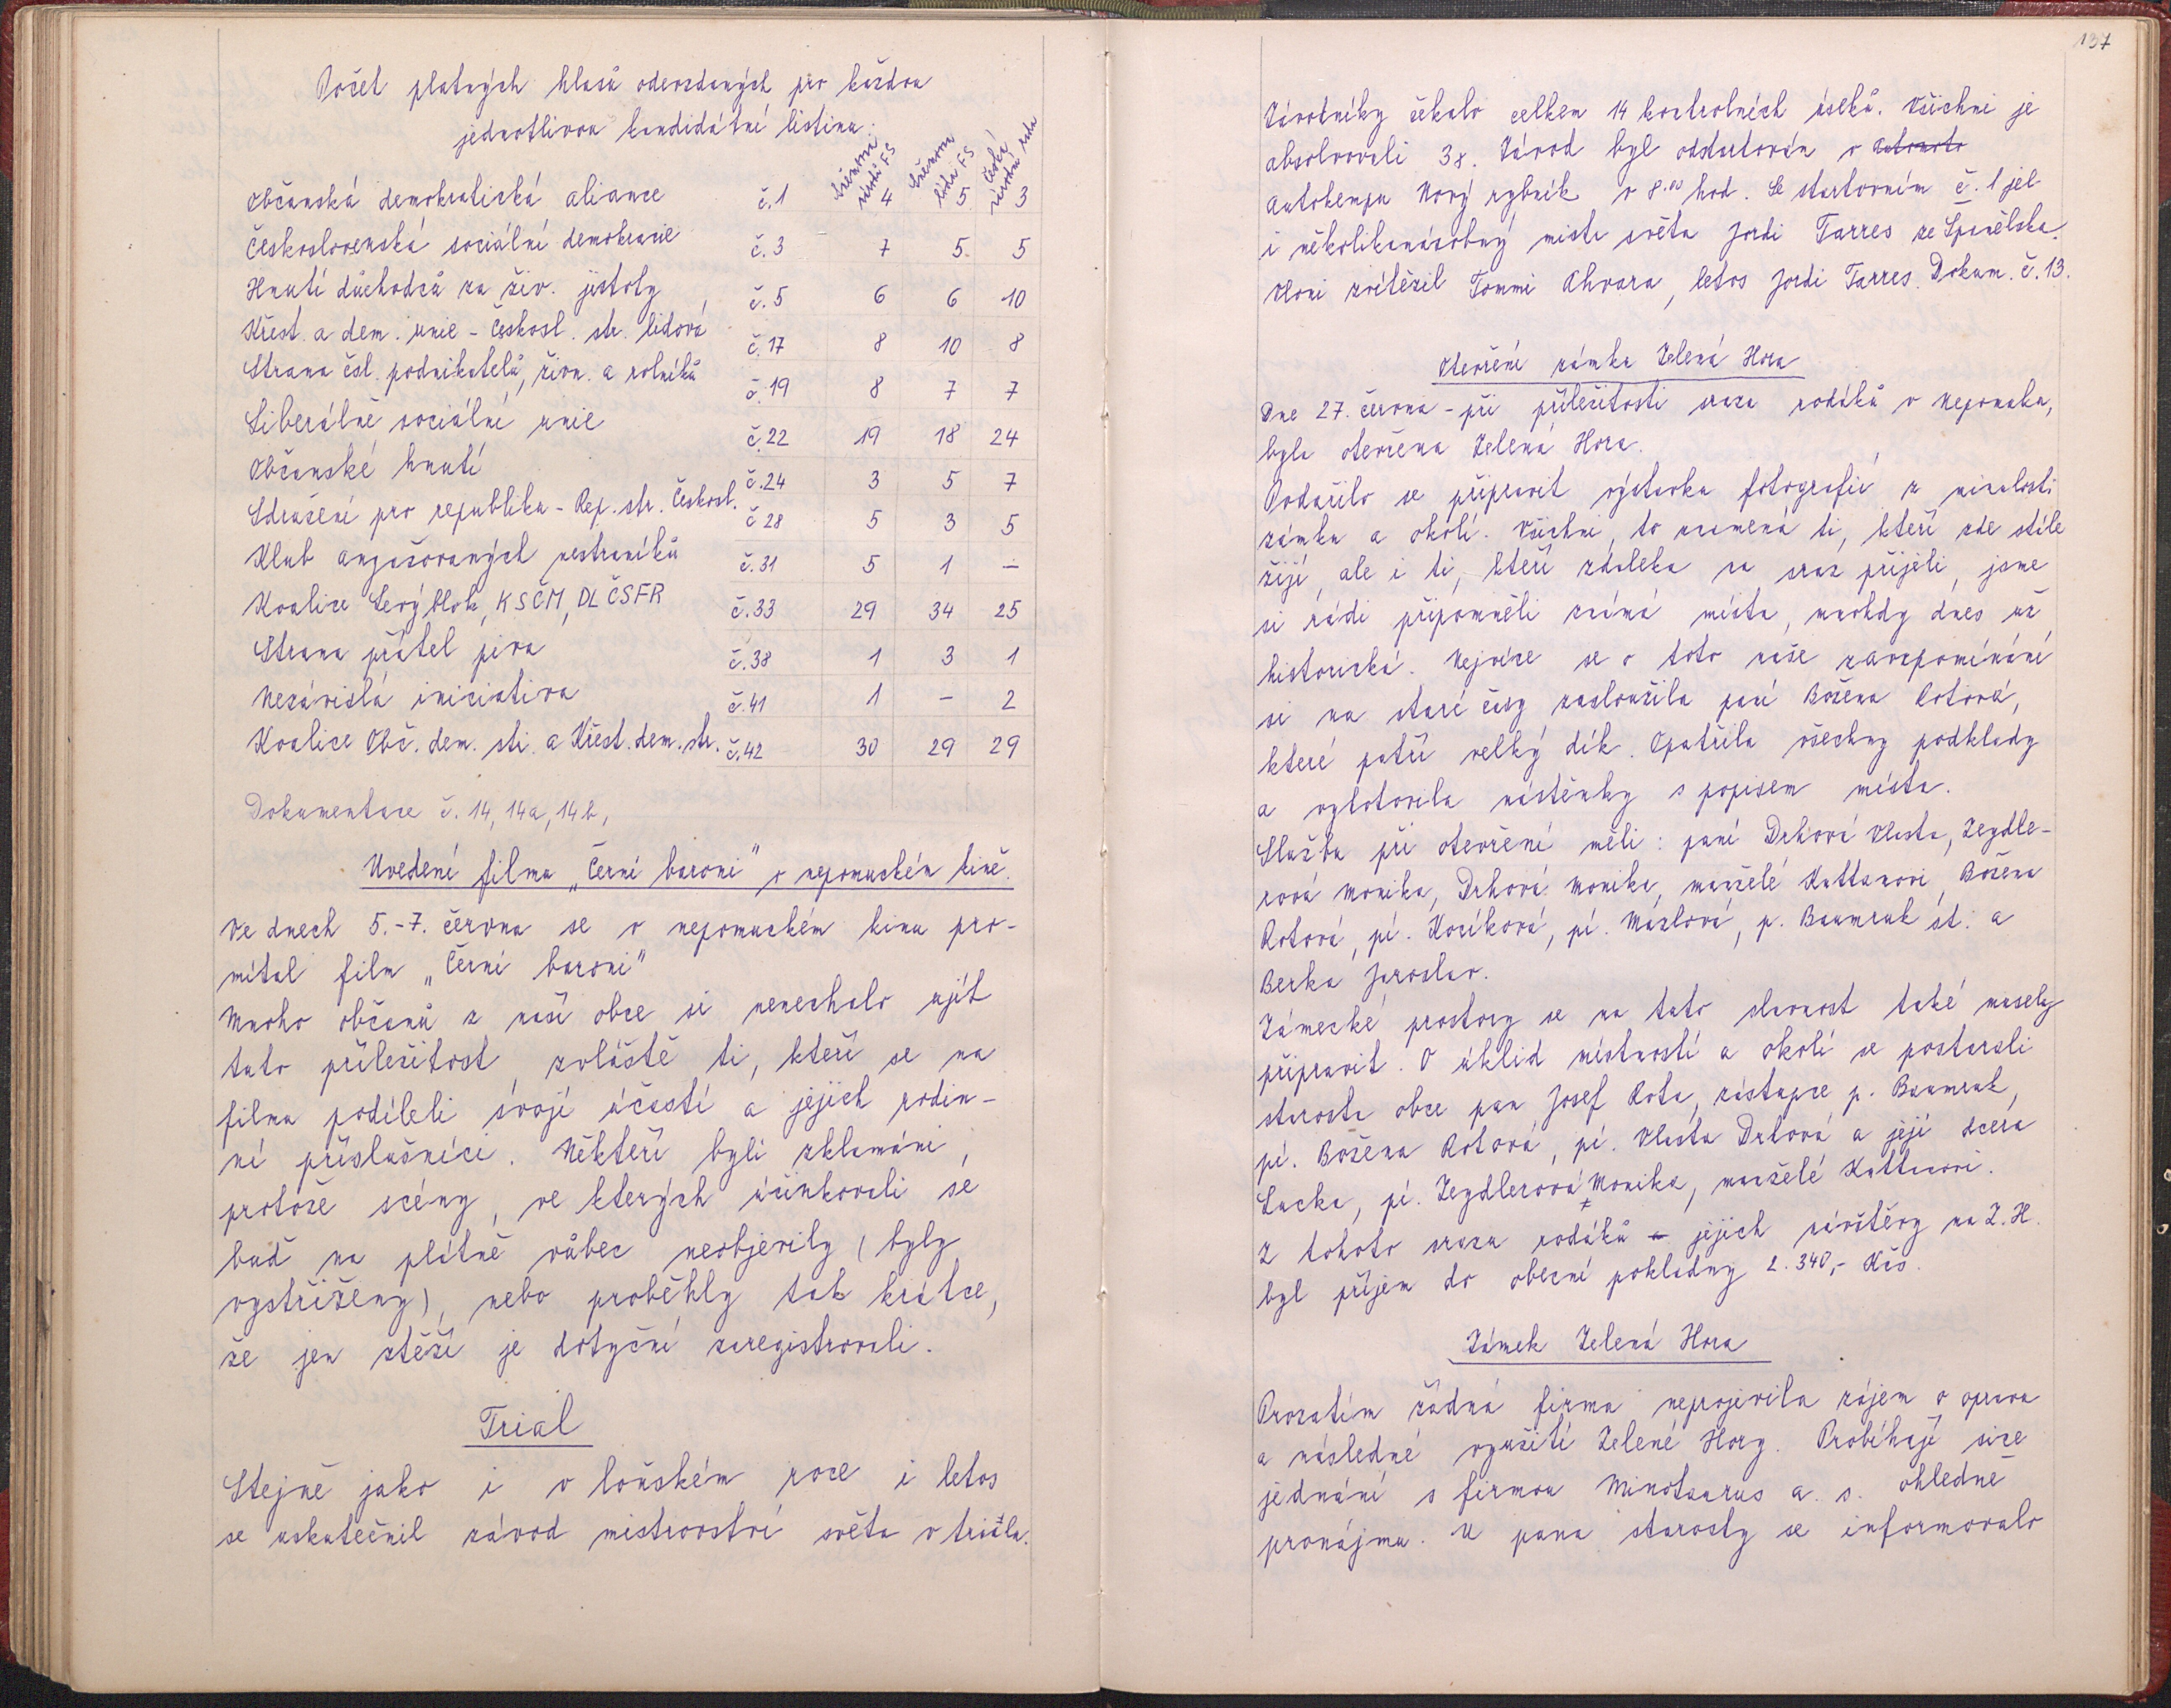 Počet platných hlasů odevzdaných pro každou
jednotlivou kandidátní listinu:
Sněmovna národů FS
Sněmovna lidu FS
Česká národní rada
Občanská demokratická aliance č.1 4 5 3
Československá sociální demokracie č.3 7 5 5
Hnutí důchodců za živ. jistoty č.5 6 6 10
Křest. a dem. unie - Českosl. str. lidová č.17 8 10 8
Strana čsl. podnikatelů, živn. a rolníků č.19 8 7 7
Liberálně sociální unie č.22 19 18 24
Občanské hnutí č.24 3 5 7
Sdružení pro republiku - Rep. str. Českosl. č 28 5 3 5
Klub angažovaných nestraníků č.31 5 1 –
Koalice Levý blok, KSČM, DL ČSFR č.33 29 34 25
Strana přátel piva č.38 1 3 1
Nezávislá iniciativa č.41 1 – 2
Koalice Obč. dem. str. a Křest. dem. str. č.42 30 29 29
Dokumentace č. 14, 14a, 14b,
Uvedení filmu „Černí baroni" v nepomuckém kině.
Ve dnech 5.-7. června se v nepomuckém kinu pro-
mítal film „Černí baroni"
Mnoho občanů z naší obce si nenechalo ujít
tuto příležitost, zvláště ti, kteří se na
filmu podíleli svojí účastí a jejich rodin-
ní příslušníci. Někteří byli zklamáni,
protože scény, ve kterých účinkovali se
buď na plátně vůbec neobjevily (byly
vystřiženy), nebo proběhly tak krátce,
že jen stěží je dotyční zaregistrovali.
Trial
Stejně jako i v loňském roce i letos
se uskutečnil závod mistrovství světa v trialu.
137
Závodníky čekalo celkem 14 kontrolních úseků. Všichni je
absolvovali 3x. Závod byl odstartován v
autokempu Nový rybník v 8.00 hod. Se startovním č. 1 jel
i několikanásobný mistr světa Jordi Tarres ze Španělska.
Vloni zvítězil Tommi Ahvara, letos Jordi Tarres. Dokum. č. 13.
Otevření zámku Zelená Hora
Dne 27. června - při příležitosti srazu rodáků v Nepomuku,
byla otevřena Zelená Hora.
Podařilo se připravit výstavku fotografií z minulosti
zámku a okolí. Všichni, to znamená ti, kteří zde stále
žijí, ale i ti, kteří zdaleka na sraz přijeli, jsme
si rádi připomněli známá místa, mnohdy dnes už
historická. Nejvíce se o toto naše zavzpomínání
si na staré časy zasloužila paní Božena Rotová,
které patří velký dík. Opatřila všechny podklady
a vyhotovila nástěnky s popisem místa.
Službu při otevření měli: paní Drhová Vlasta, Zeydle-
rová Monika, Drhová Monika, manželé Kuttanovi, Božena
Rotová, pí. Kozíková, pí. Mázlová, p. Baumruk st. a
Berka Jaroslav.
Zámecké prostory se na tuto slavnost také musely
připravit. O úklid místností a okolí se postarali
starosta obce pan Josef Rota, zástupce p. Baumruk,
pí. Božena Rotová, pí. Vlasta Drhová a její dcera
Lucka, pí. Zeydlerová Monika, manželé Kuttanovi.
Z tohoto srazu rodáků z jejich návštěvy na Z. H.
byl příjem do obecní pokladny 2.340,- Kčs.
Zámek Zelená Hora
Prozatím žádná firma neprojevila zájem o opravu
a následné využití Zelené Hory. Probíhají sice
jednání s firmou Minotaurus a. s. ohledně
pronájmu. U pana starosty se informovalo